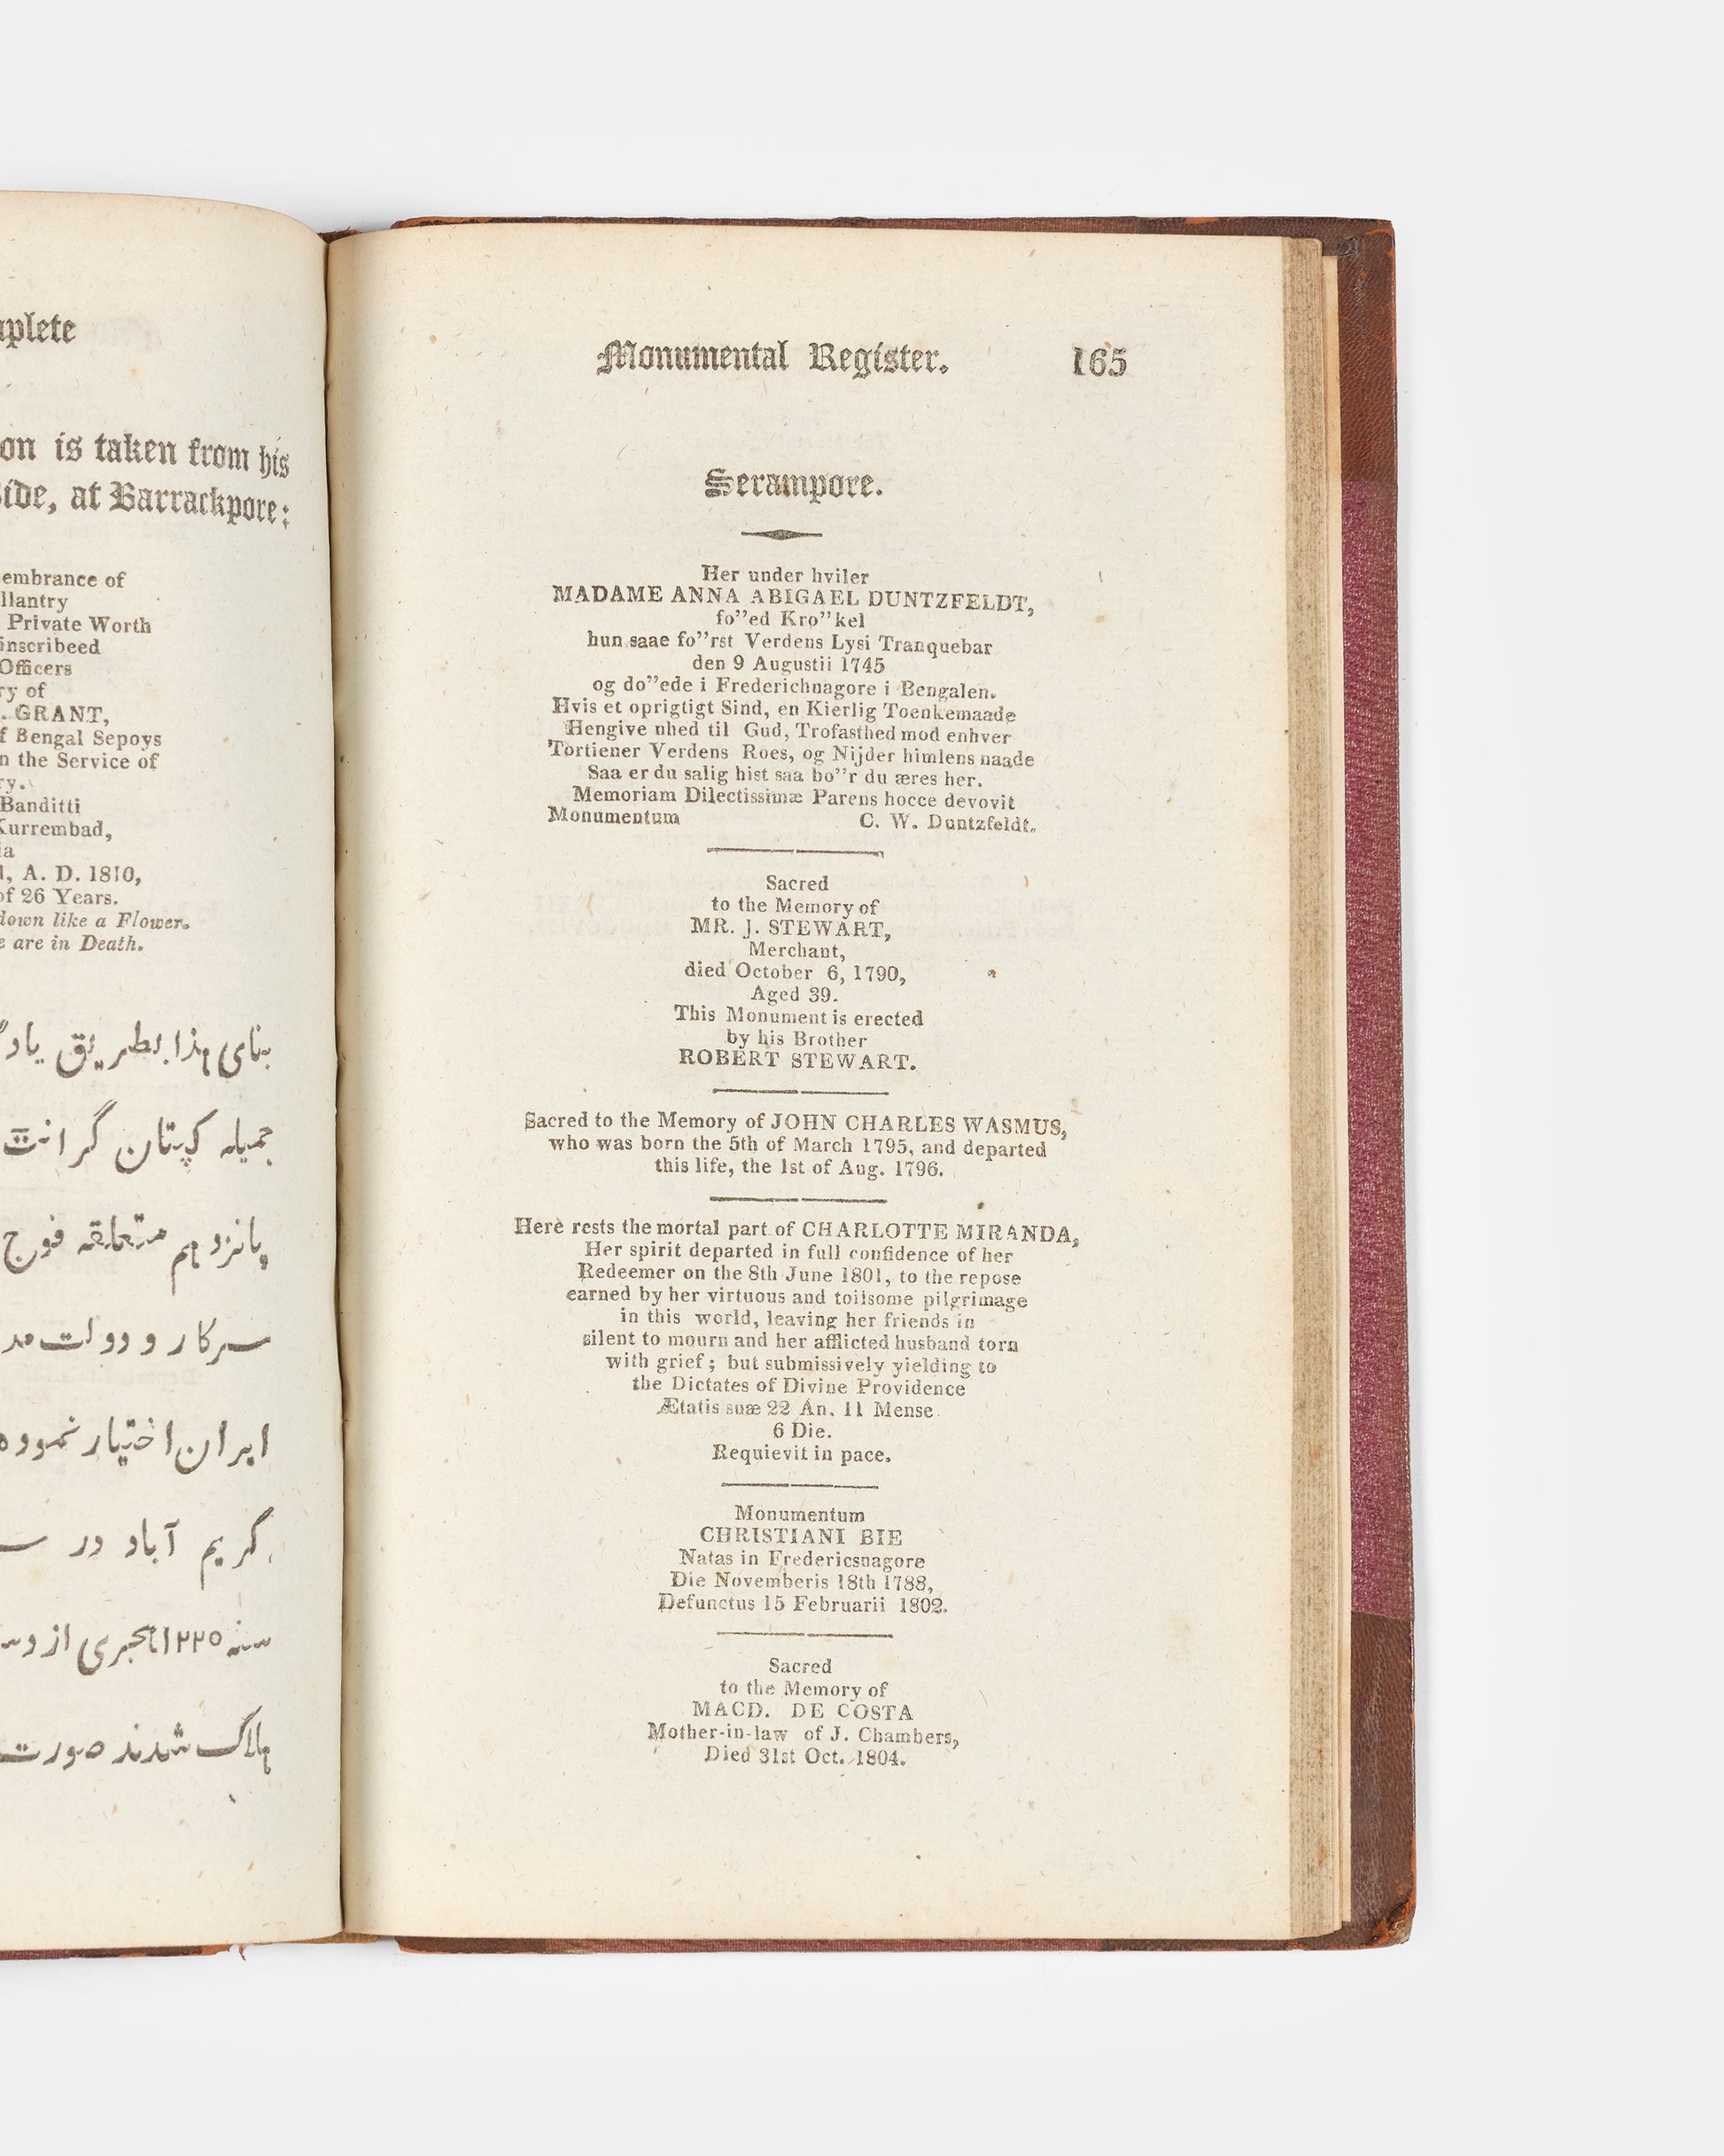 mplete
on is taken from his
side, at Barrackpore:
embrance of
llantry
Private Worth
inscribeed
Officers
ry of
. GRANT,
f Bengal Sepoys
n the Service of
ry.
Banditti
Kurrembad,
ia
l, A. D. 1810,
of 26 Years.
down like a Flower.
e are in Death.
بنای هذا بطریق یاد
جمیله کپتان گرانت
پانزدهم متعلقه فوج
سرکار و دولت مد
ایران اختیار نموده
گریم آباد در
سنه ۱۲۲۵ هجری از دس
هلاک شدند صورت
Monumental Register. 165
Serampore.
Her under hviler
MADAME ANNA ABIGAEL DUNTZFELDT,
fo”ed Kro”kel
hun saae fo”rst Verdens Lysi Tranquebar
den 9 Augustii 1745
og do”ede i Frederichnagore i Bengalen.
Hvis et oprigtigt Sind, en Kierlig Toenkemaade
Hengive nhed til Gud, Trofasthed mod enhver
Tortiener Verdens Roes, og Nijder himlens naade
Saa er du salig hist saa bo”r du æres her.
Memoriam Dilectissimæ Parens hocce devovit
Monumentum C. W. Duntzfeldt.
Sacred
to the Memory of
MR. J. STEWART,
Merchant,
died October 6, 1790,
Aged 39.
This Monument is erected
by his Brother
ROBERT STEWART.
Sacred to the Memory of JOHN CHARLES WASMUS,
who was born the 5th of March 1795, and departed
this life, the 1st of Aug. 1796.
Here rests the mortal part of CHARLOTTE MIRANDA,
Her spirit departed in full confidence of her
Redeemer on the 8th June 1801, to the repose
earned by her virtuous and toilsome pilgrimage
in this world, leaving her friends in
silent to mourn and her afflicted husband torn
with grief; but submissively yielding to
the Dictates of Divine Providence
Ætatis suæ 22 An. 11 Mense
6 Die.
Requievit in pace.
Monumentum
CHRISTIANI BIE
Natas in Fredericsnagore
Die Novemberis 18th 1788,
Defunctus 15 Februarii 1802.
Sacred
to the Memory of
MACD. DE COSTA
Mother-in-law of J. Chambers,
Died 31st Oct. 1804.